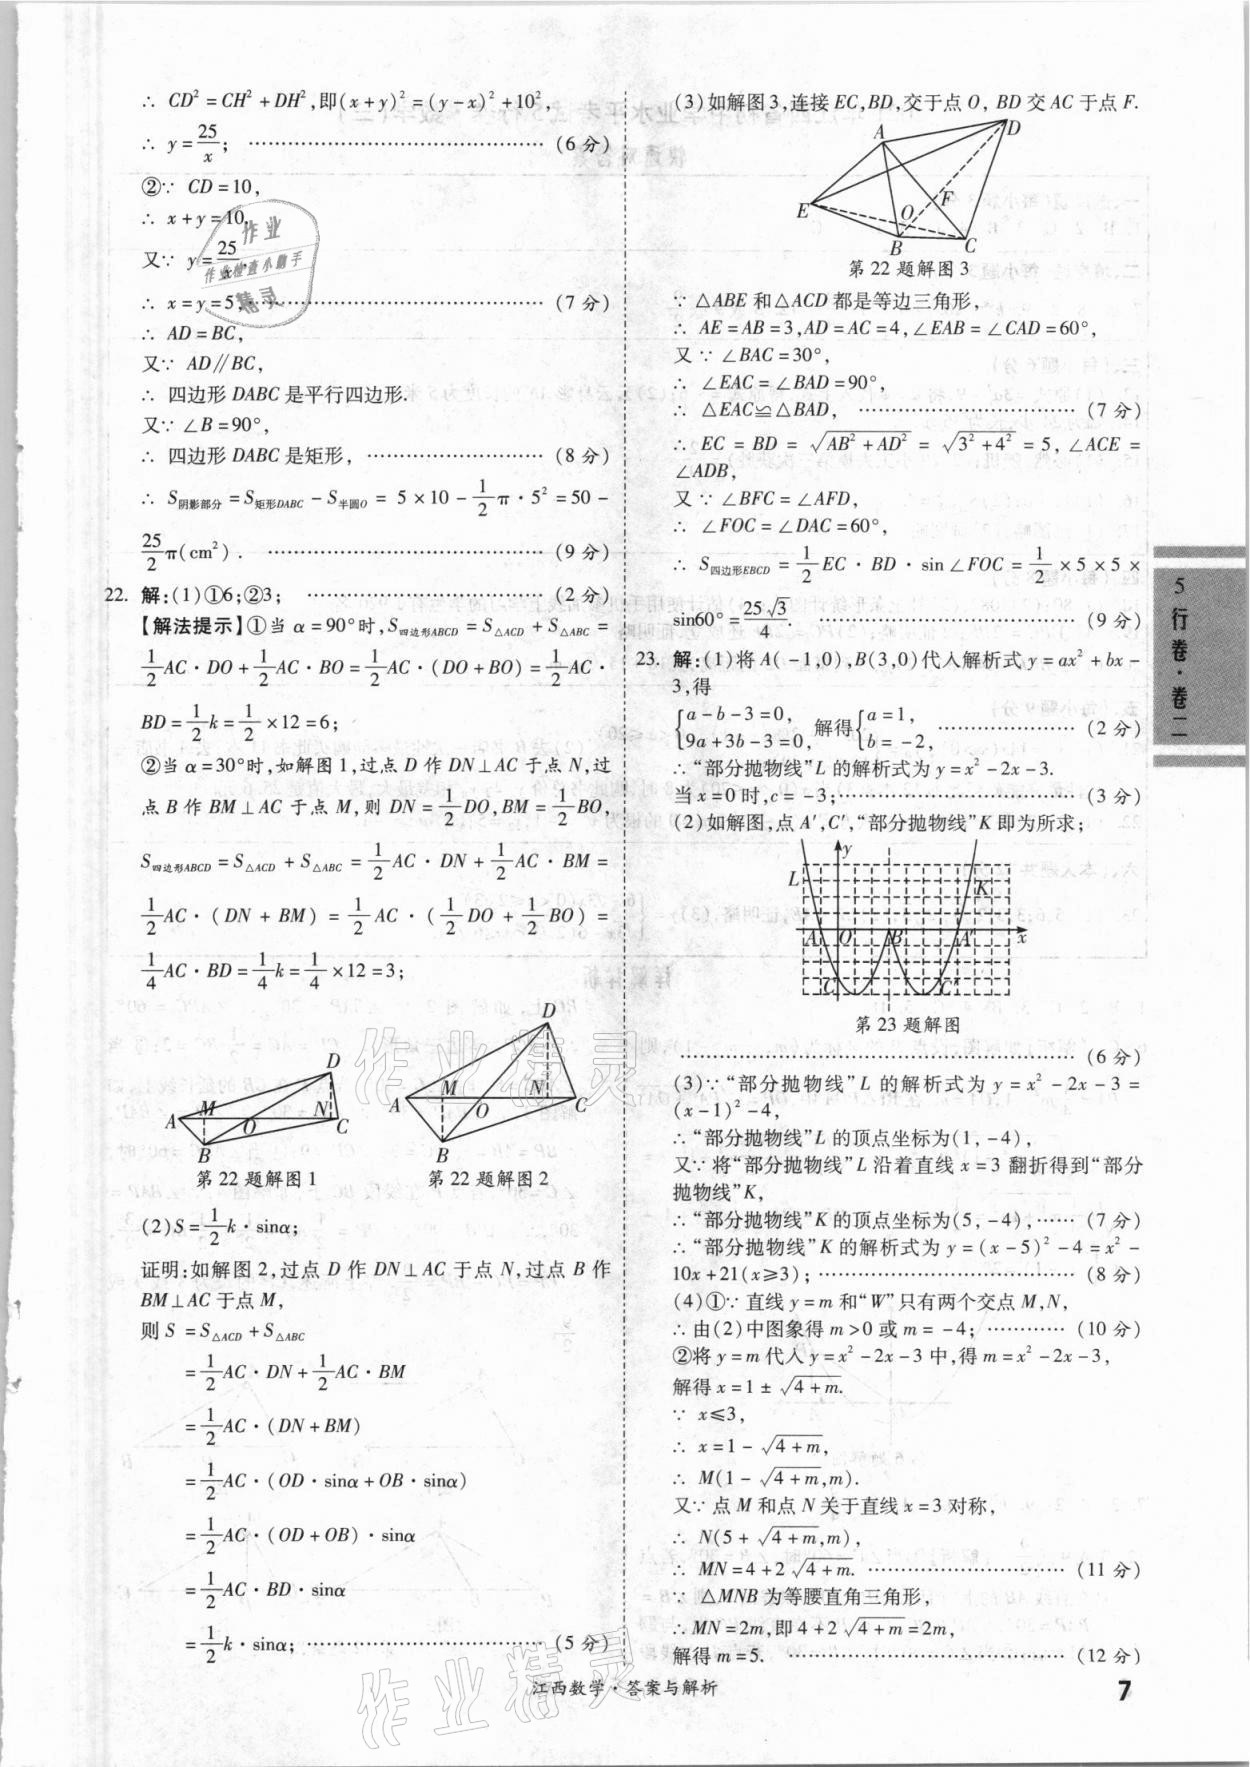 ∴ CD²=CH²+DH²,即(x+y)²=(y-x)²+10²,
∴ y=25/x; ………… (6 分)
②∵ CD=10,
∴ x+y=10,
又∵ y=25/x,
∴ x=y=5, ………… (7 分)
∴ AD=BC,
又∵ AD∥BC,
∴ 四边形 DABC 是平行四边形.
又∵ ∠B=90°,
∴ 四边形 DABC 是矩形, ………… (8 分)
∴ S阴影部分=S矩形DABC-S半圆O = 5×10-1/2π·5²=50-
25/2π(cm²). ………… (9 分)
22. 解:(1)①6;②3; ………… (2 分)
【解法提示】①当 α=90°时,S四边形ABCD=S△ACD+S△ABC=
1/2AC·DO+1/2AC·BO=1/2AC·(DO+BO)=1/2AC·
BD=1/2k=1/2×12=6;
②当 α=30°时,如解图 1,过点 D 作 DN⊥AC 于点 N,过
点 B 作 BM⊥AC 于点 M,则 DN=1/2DO,BM=1/2BO,
S四边形ABCD=S△ACD+S△ABC=1/2AC·DN+1/2AC·BM=
1/2AC·(DN+BM)=1/2AC·(1/2DO+1/2BO)=
1/4AC·BD=1/4k=1/4×12=3;
A M O N C D B
第 22 题解图 1
A M O N C D B
第 22 题解图 2
(2)S=1/2k·sinα;
证明:如解图 2,过点 D 作 DN⊥AC 于点 N,过点 B 作
BM⊥AC 于点 M,
则 S =S△ACD+S△ABC
=1/2AC·DN+1/2AC·BM
=1/2AC·(DN+BM)
=1/2AC·(OD·sinα+OB·sinα)
=1/2AC·(OD+OB)·sinα
=1/2AC·BD·sinα
=1/2k·sinα; ………… (5 分)
(3)如解图 3,连接 EC,BD,交于点 O, BD 交 AC 于点 F.
A D E F O B C
第 22 题解图 3
∵ △ABE 和△ACD 都是等边三角形,
∴ AE=AB=3,AD=AC=4,∠EAB=∠CAD=60°,
又∵ ∠BAC=30°,
∴ ∠EAC=∠BAD=90°,
∴ △EAC≌△BAD, ………… (7 分)
∴ EC = BD = √(AB²+AD²) = √(3²+4²) = 5, ∠ACE =
∠ADB,
又∵ ∠BFC=∠AFD,
∴ ∠FOC=∠DAC=60°,
∴ S四边形EBCD=1/2EC·BD·sin∠FOC=1/2×5×5×
sin60°=25√3/4. ………… (9 分)
23. 解:(1)将 A(-1,0),B(3,0)代入解析式 y=ax²+bx-
3,得
{a-b-3=0, 9a+3b-3=0, 解得{a=1, b=-2, ………… (2 分)
∴“部分抛物线”L 的解析式为 y=x²-2x-3.
当 x=0 时,c=-3; ………… (3 分)
(2)如解图,点 A′,C′,“部分抛物线”K 即为所求;
y L K A O B A′ x C C′
第 23 题解图
………… (6 分)
(3)∵“部分抛物线”L 的解析式为 y=x²-2x-3=
(x-1)²-4,
∴“部分抛物线”L 的顶点坐标为(1,-4),
又∵ 将“部分抛物线”L 沿着直线 x=3 翻折得到“部分
抛物线”K,
∴“部分抛物线”K 的顶点坐标为(5,-4), …… (7 分)
∴“部分抛物线”K 的解析式为 y=(x-5)²-4=x²-
10x+21(x≥3); ………… (8 分)
(4)①∵ 直线 y=m 和“W”只有两个交点 M,N,
∴ 由(2)中图象得 m>0 或 m=-4; ………… (10 分)
②将 y=m 代入 y=x²-2x-3 中,得 m=x²-2x-3,
解得 x=1±√(4+m).
∵ x≤3,
∴ x=1-√(4+m),
∴ M(1-√(4+m),m).
又∵ 点 M 和点 N 关于直线 x=3 对称,
∴ N(5+√(4+m),m),
∴ MN=4+2√(4+m). ………… (11 分)
∵ △MNB 为等腰直角三角形,
∴ MN=2m,即 4+2√(4+m)=2m,
解得 m=5. ………… (12 分)
5行卷·卷二
江西数学·答案与解析
7
作业
作业检查小助手
精灵
作业精灵
作业精灵